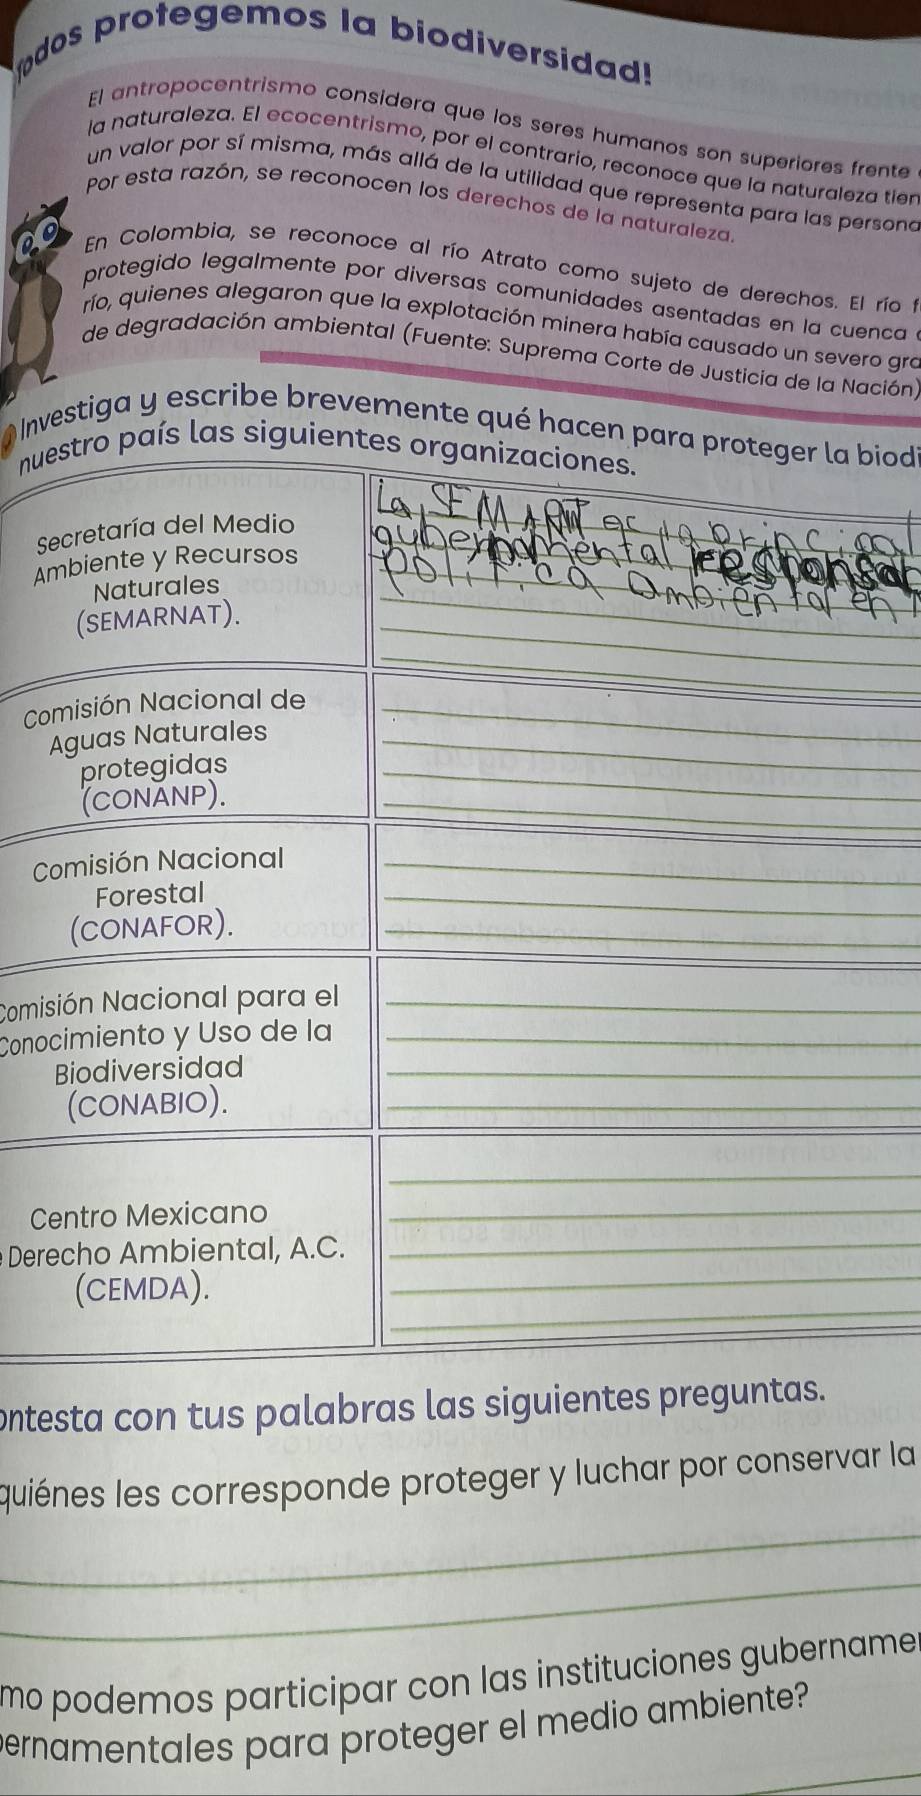 Todos protegemos la biodiversidad!
El antropocentrismo considera que los seres humanos son superiores frente
la naturaleza. El ecocentrismo, por el contrario, reconoce que la naturaleza tien
un valor por sí misma, más allá de la utilidad que representa para las persona
Por esta razón, se reconocen los derechos de la naturaleza.
En Colombia, se reconoce al río Atrato como sujeto de derechos. El río f
protegido legalmente por diversas comunidades asentadas en la cuenca
río, quienes alegaron que la explotación minera había causado un severo gra
de degradación ambiental (Fuente: Suprema Corte de Justicia de la Nación)
Investiga y escribe brevemente qué hacen para proteger la biodi
nuestro país las siguientes organizaciones.
Secretaría del Medio
Ambiente y Recursos
Naturales
(SEMARNAT).
La SEMARNT es la principal
gubernamental responsab
politica ambiental en
Comisión Nacional de
Aguas Naturales
protegidas
(CONANP).
Comisión Nacional
Forestal
(CONAFOR).
Comisión Nacional para el
Conocimiento y Uso de la
Biodiversidad
(CONABIO).
Centro Mexicano
Derecho Ambiental, A.C.
(CEMDA).
ontesta con tus palabras las siguientes preguntas.
quiénes les corresponde proteger y luchar por conservar la
mo podemos participar con las instituciones gubername
bernamentales para proteger el medio ambiente?